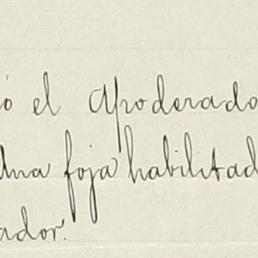 ó el Apoderado
Una foja habilitad
ador.